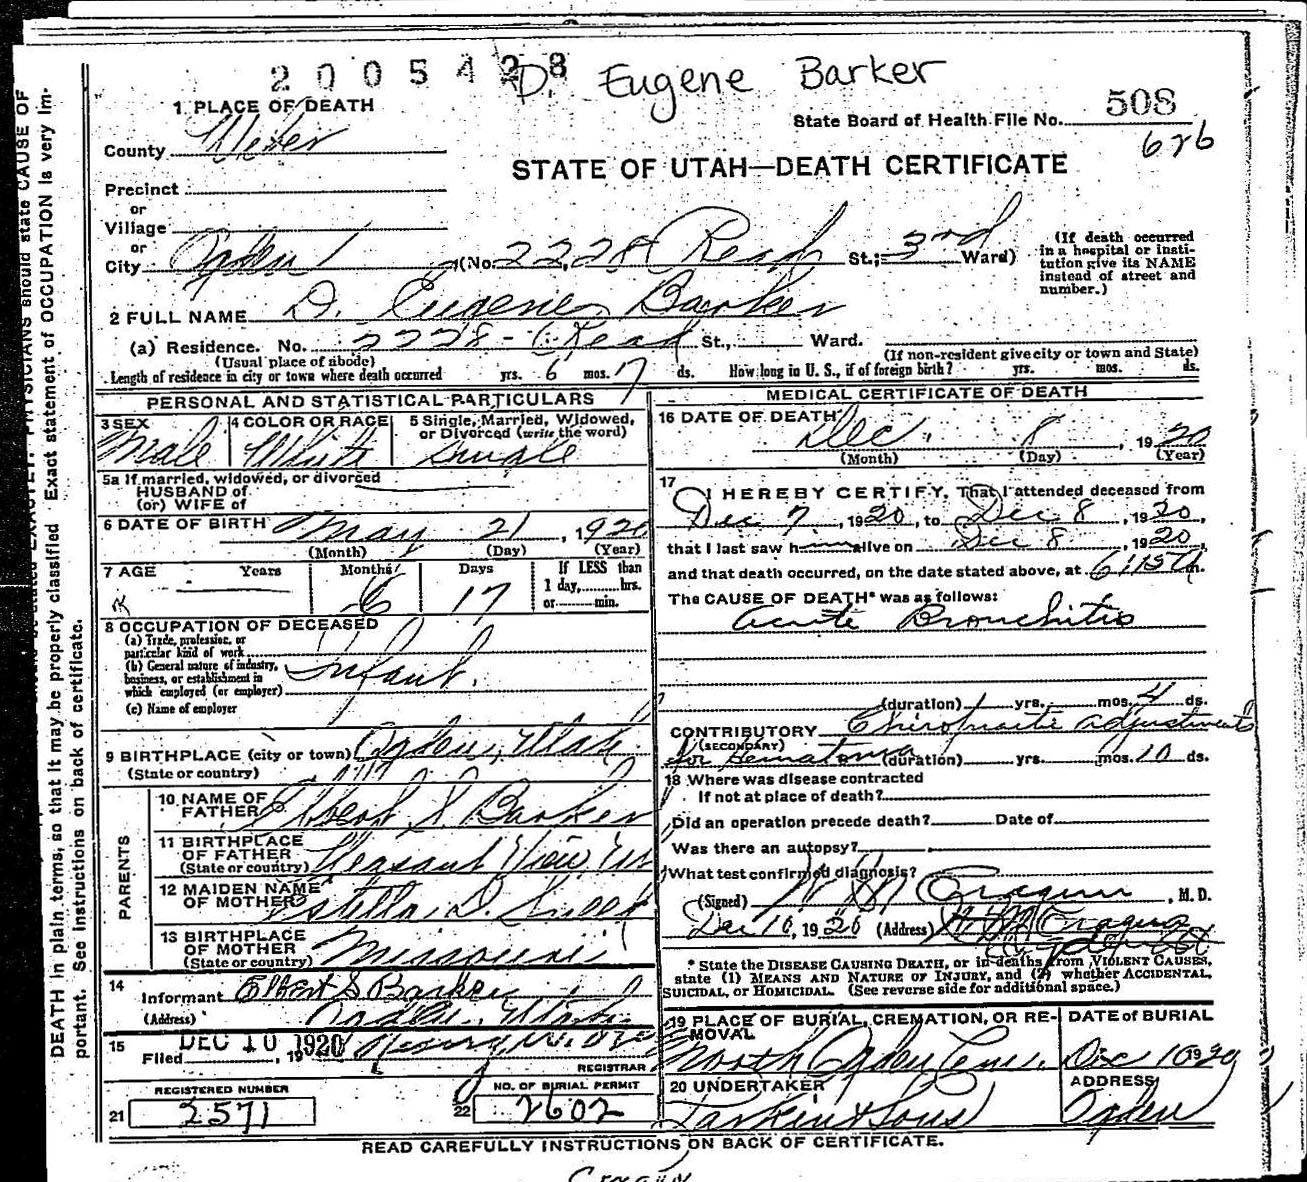 2005428
D. Eugene Barker
1 PLACE OF DEATH
State Board of Health File No. 508
626
County Weber
STATE OF UTAH—DEATH CERTIFICATE
Precinct
or
Village
or
City Ogden (No. 2228 St.; 3rd Ward)
(If death occurred in a hospital or institution give its NAME instead of street and number.)
2 FULL NAME D. Eugene Barker
(a) Residence. No. 2228 - St., Ward.
(Usual place of abode) (If non-resident give city or town and State)
Length of residence in city or town where death occurred yrs. 6 mos. 17 ds. How long in U. S., if of foreign birth? yrs. mos. ds.
PERSONAL AND STATISTICAL PARTICULARS
3 SEX Male
4 COLOR OR RACE White
5 Single, Married, Widowed, or Divorced (write the word) Single
5a If married, widowed, or divorced
HUSBAND of
(or) WIFE of
6 DATE OF BIRTH May 21, 1920
(Month) (Day) (Year)
7 AGE Years Months Days If LESS than
6 17 1 day, hrs.
or min.
8 OCCUPATION OF DECEASED
(a) Trade, profession, or
particular kind of work
(b) General nature of industry,
business, or establishment in
which employed (or employer)
Infant.
(c) Name of employer
9 BIRTHPLACE (city or town) Ogden, Utah
(State or country)
PARENTS
10 NAME OF FATHER Elbert S. Barker
11 BIRTHPLACE OF FATHER Pleasant View Ut
(State or country)
12 MAIDEN NAME OF MOTHER Estella D.
13 BIRTHPLACE OF MOTHER Missouri
(State or country)
14 Informant Elbert S Barker
(Address) Ogden, Utah
15 Filed DEC 10 1920
REGISTRAR
REGISTERED NUMBER
21 2571
NO. OF BURIAL PERMIT
22 2602
MEDICAL CERTIFICATE OF DEATH
16 DATE OF DEATH Dec. 8, 1920
(Month) (Day) (Year)
17 I HEREBY CERTIFY, That I attended deceased from
Dec 7, 1920, to Dec 8, 1920,
that I last saw him alive on Dec 8, 1920,
and that death occurred, on the date stated above, at 6:15 m.
The CAUSE OF DEATH* was as follows:
Acute Bronchitis
(duration) yrs. mos. 4 ds.
CONTRIBUTORY Chiropractic adjustments
(SECONDARY) for Hematoma (duration) yrs. mos. 10 ds.
18 Where was disease contracted
If not at place of death?
Did an operation precede death? Date of
Was there an autopsy?
What test confirmed diagnosis?
(Signed) Cragun, M. D.
Dec 10, 1920 (Address) Cragun
* State the DISEASE CAUSING DEATH, or in deaths from VIOLENT CAUSES,
state (1) MEANS AND NATURE OF INJURY, and (2) whether ACCIDENTAL,
SUICIDAL, OR HOMICIDAL. (See reverse side for additional space.)
19 PLACE OF BURIAL, CREMATION, OR REMOVAL North Ogden Cem.
DATE of BURIAL Dec 10 1920
20 UNDERTAKER Larkin & Sons
ADDRESS Ogden
READ CAREFULLY INSTRUCTIONS ON BACK OF CERTIFICATE.
PHYSICIANS should state CAUSE OF
DEATH in plain terms, so that it may be properly classified. Exact statement of OCCUPATION is very important. See instructions on back of certificate.